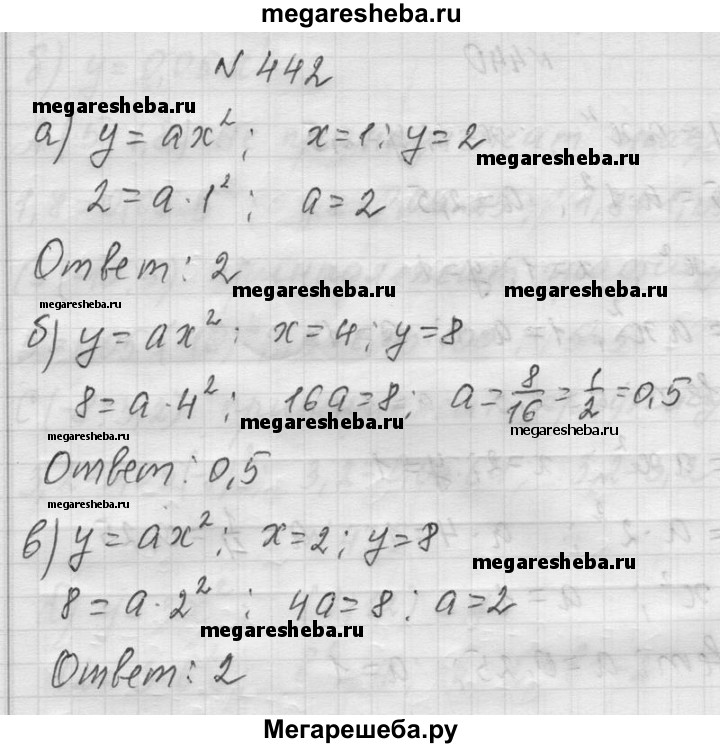 megaresheba.ru
N 442
megaresheba.ru
а) y = ax²; x = 1; y = 2
megaresheba.ru
2 = a · 1²; a = 2
Ответ: 2
megaresheba.ru megaresheba.ru
megaresheba.ru
б) y = ax²; x = 4; y = 8
8 = a · 4²; 16a = 8; a = 8/16 = 1/2 = 0,5
megaresheba.ru megaresheba.ru megaresheba.ru
Ответ: 0,5
megaresheba.ru
в) y = ax²; x = 2; y = 8
megaresheba.ru
8 = a · 2²; 4a = 8; a = 2
megaresheba.ru
Ответ: 2
megaresheba.ru
Мегарешеба.ру